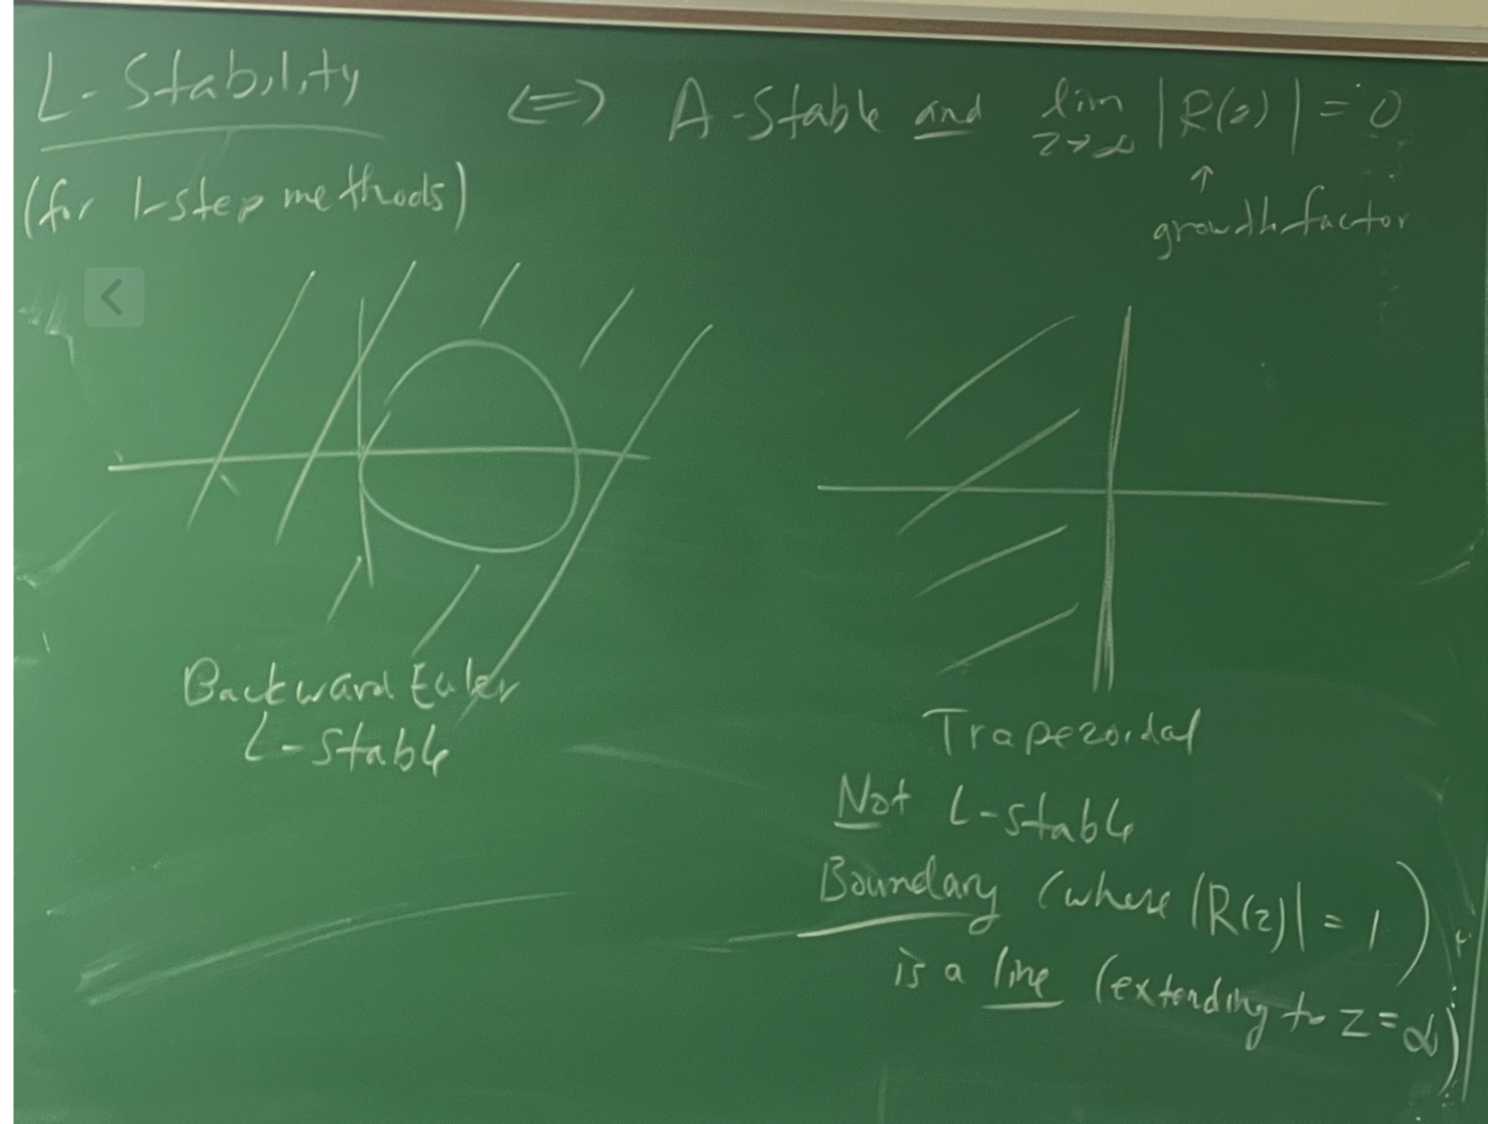 L-Stability <=> A-Stable and lim |R(z)| = 0
z→∞
(for 1-step methods)
↑
growth factor
Backward Euler
L-Stable
Trapezoidal
Not L-stable
Boundary (where |R(z)| = 1)
is a line (extending to z = ∞)